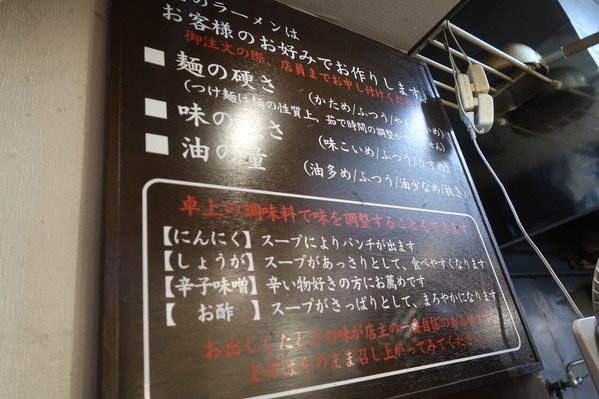 のラーメンは
お客様のお好みでお作りします。
御注文の際、店員までお申し付けくだ
■ 麺の硬さ (かため/ふつう/やわらかめ)
(つけ麺は麺の性質上、茹で時間の調整ができません)
■ 味の濃さ (味こいめ/ふつう/うすめ)
■ 油の量 (油多め/ふつう/油少なめ/抜き)
卓上の調味料で味を調整することもできます
【にんにく】スープによりパンチが出ます
【しょうが】スープがあっさりとして、食べやすくなります
【辛子味噌】辛い物好きの方にお薦めです
【 お酢 】スープがさっぱりとして、まろやかになります
お出ししたときの味が店主の一番自信のある味です
まずはそのまま召し上がってみてください